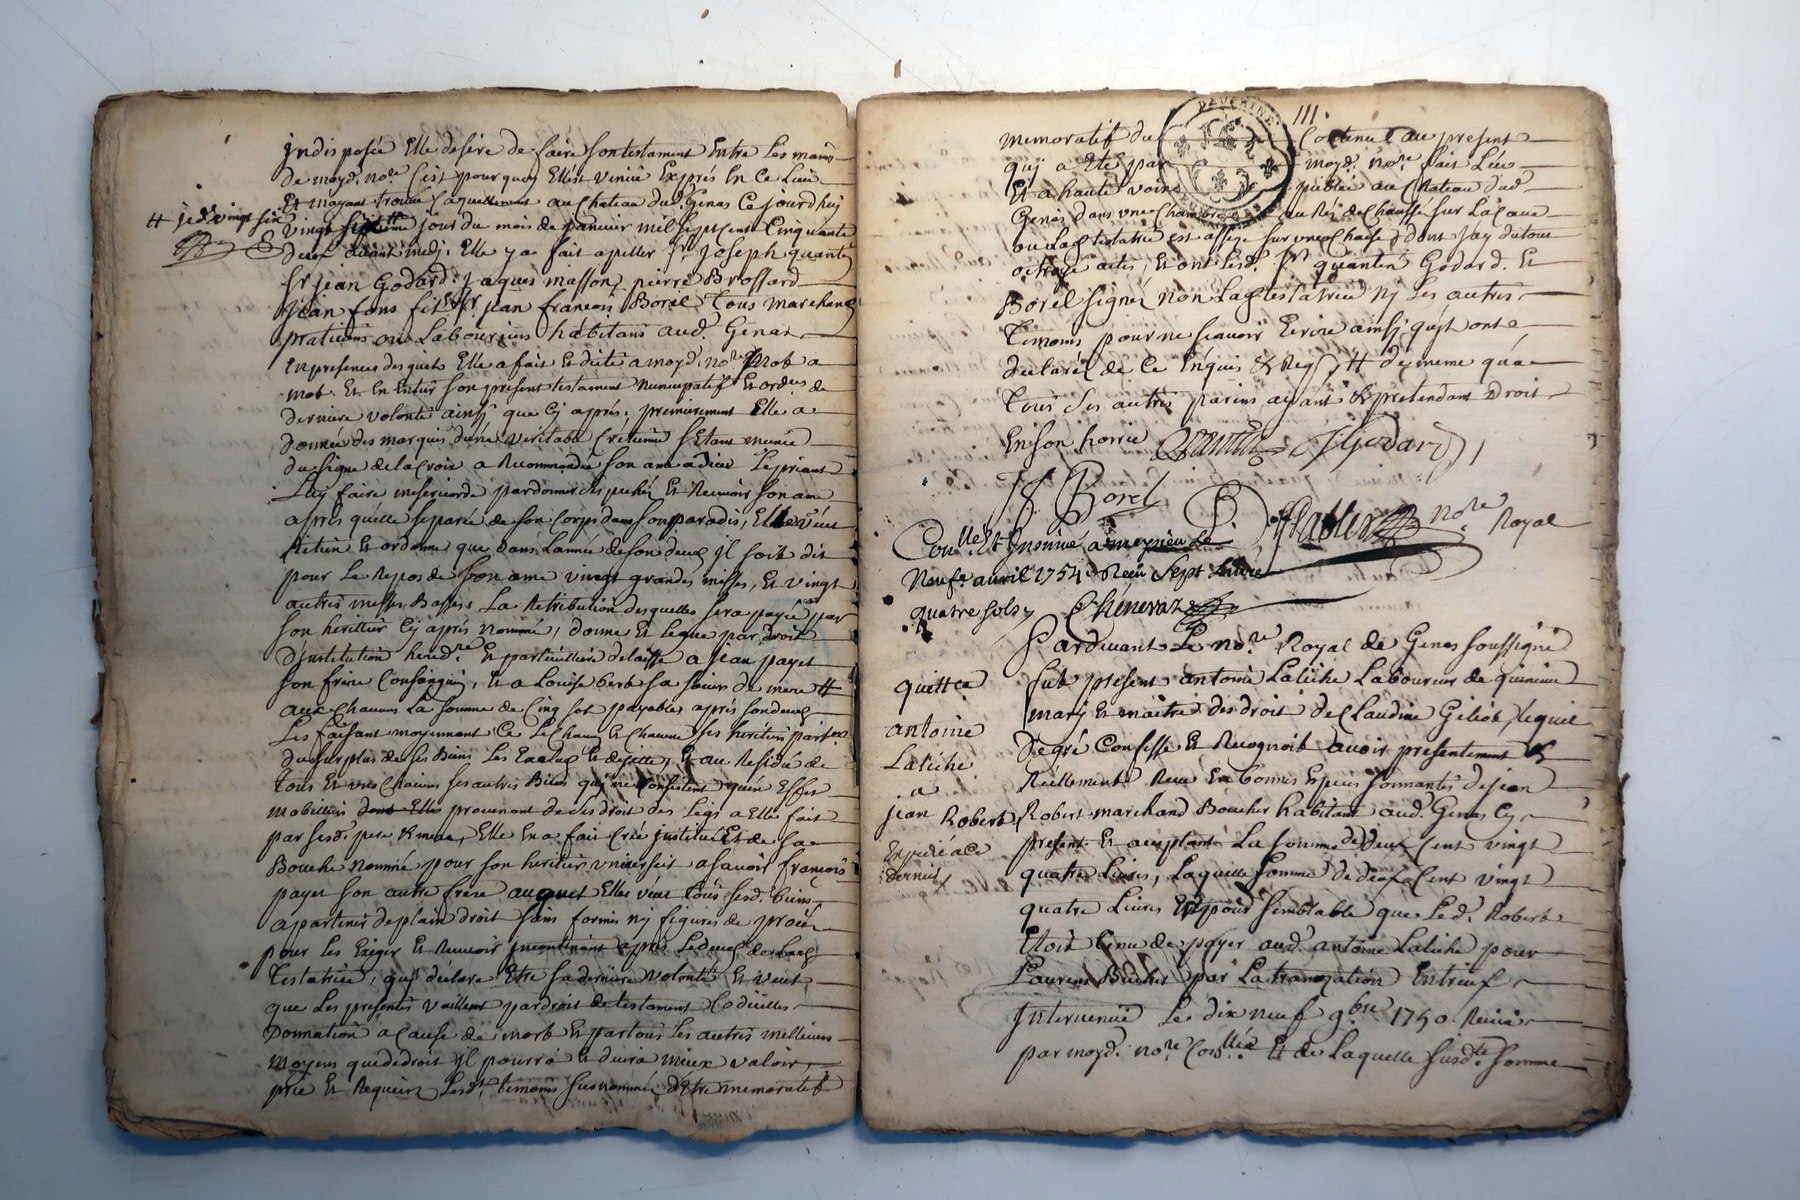 jndisposée Elle desire de faire son testament Entre Les mains
de moyd. nore C'est pourquoy Ellest venüe Exprés En ce Lieu
Et mayant trouvé au Chateau dud. Genas Ce jourd'huy
# jed. vingt six
vingt jour du mois de Janvier mil sept cent Cinquante
deux avant midj. Elle y a fait apeller Sr. Joseph quantin
Sr jean Godard. jaques masson, pierre Brossard
jean fons fils Et Sr. jean francois Borel Tous marchands
praticiens ou Laboureurs habitans aud. Genas
En presences desquels Elle a fait Et dicté a moyd. nore mot a
mot Et En Entier son present testament nuncupatif Et ordre de
derniere volonté ainsj que Cy aprés. premierement Elle a
donnée des marques dune veritable Crétienne S'Etant munie
du signe de la Croix a Recommandée son ame a dieu Le priant
Luy faire misericorde pardonner ses pechés Et Recevoir son ame
aprés quelle separée de son Corps dans son paradis, Elle veut
Entend Et ordonne que dans L'année de son decés jl soit dit
pour Le Repos de son ame vingt grandes messes, Et vingt
autres messes Basses La Retribution desquelles sera payée par
son heritier Cy aprés nommé, donne Et Legue par droit
D'institution heredre Et particulliere delaisse a jean payet
son frere Consanguin, Et a Louise sa soeur de mere #
aux Chacuns La somme de Cinq sols payables aprés son decés
Les faisant moyennant Ce Le Chacun Et Chacune ses heritiers parters
du surplus de ses Biens Les Exclud Et dejette, Et au Residu de
Tous Et uns Chacuns ses autres Biens qui ne Consistent quen Effets
mobiliers dont Elle provenant de ses droit des Legs a Elle fait
par sesd. pere & mere, Elle En a fait Créé jnstitué Et de sa
Bouche nommée pour son heritier universel a savoir francois
payet son autre frere auquel Elle veut Tous sesd. biens
apartenir de plain droit sans formes nj figures de procés
pour Les Exiger Et Recevoir jncontinant aprés Le decés de Lad.
Testatrice, quj declare Etre sa derniere volonté Et veut
que Les presentes vaillent par droit de testament Codicilles
Donnation a Cause de mort Et par tous Les autres meilleurs
moyens que de droit jl pourra Et devra mieux valoir
prie Et Requiers Lesd. temoins susnommés d'Etre memoratif
DAUPHINE
111.
memoratif du Contenu au present
quj a Eté par moyd. nore fait Leu
Et a haute voix publié au Chateau dud.
Genas dans une Chambre au Rés de Chaussé sur La Cave
ou Lad. testatrice est assize sur une Chaise, dont jay du tout
octroyé actes, Et ont Lesd. Srs quantin Godard. Et
Borel signé non Lad. testatrice nj Les autres
Temoins pour ne sçavoir Ecrire ainsj quils ont
declaré de Ce Enquis & Reqs # de meme qu'a
Tous Ses autres parens ayant & pretendant Droit
En son horrie Quantin J Godard
J f Borel
P. nore Royal
Conlle Et Insinué a meyzieu Le
neufe avril 1754. Receu Sept Livres
quatre sols Cheneraz
Pardevant Le nore Royal de Genas soussigné
quittce
antoine
Latiche
a
jean Robert
Expedié a ce
dernier
fut present antoine Latiche Laboureur de
mary Et maitre des droit de Claudine Geliot, Lequel
De gré Confesse Et Recognoit avoir presentement &
Réellement Receu En bonnes Especes sonnantes de jean
Robert marchand Boucher habitant aud. Genas Cy
present Et acceptant La somme de deux Cent vingt
quatre Livres, Laquelle somme de deux Cent vingt
quatre Livres Est pour semblable que Led. Robert
Etoit tenu de payer aud. antoine Latiche pour
Laurent Bucher par La tranzation Entreux
Intervenue Le dix neuf 9bre 1750 Receüe
par moyd. nore Conllée Et de Laquelle susdte somme